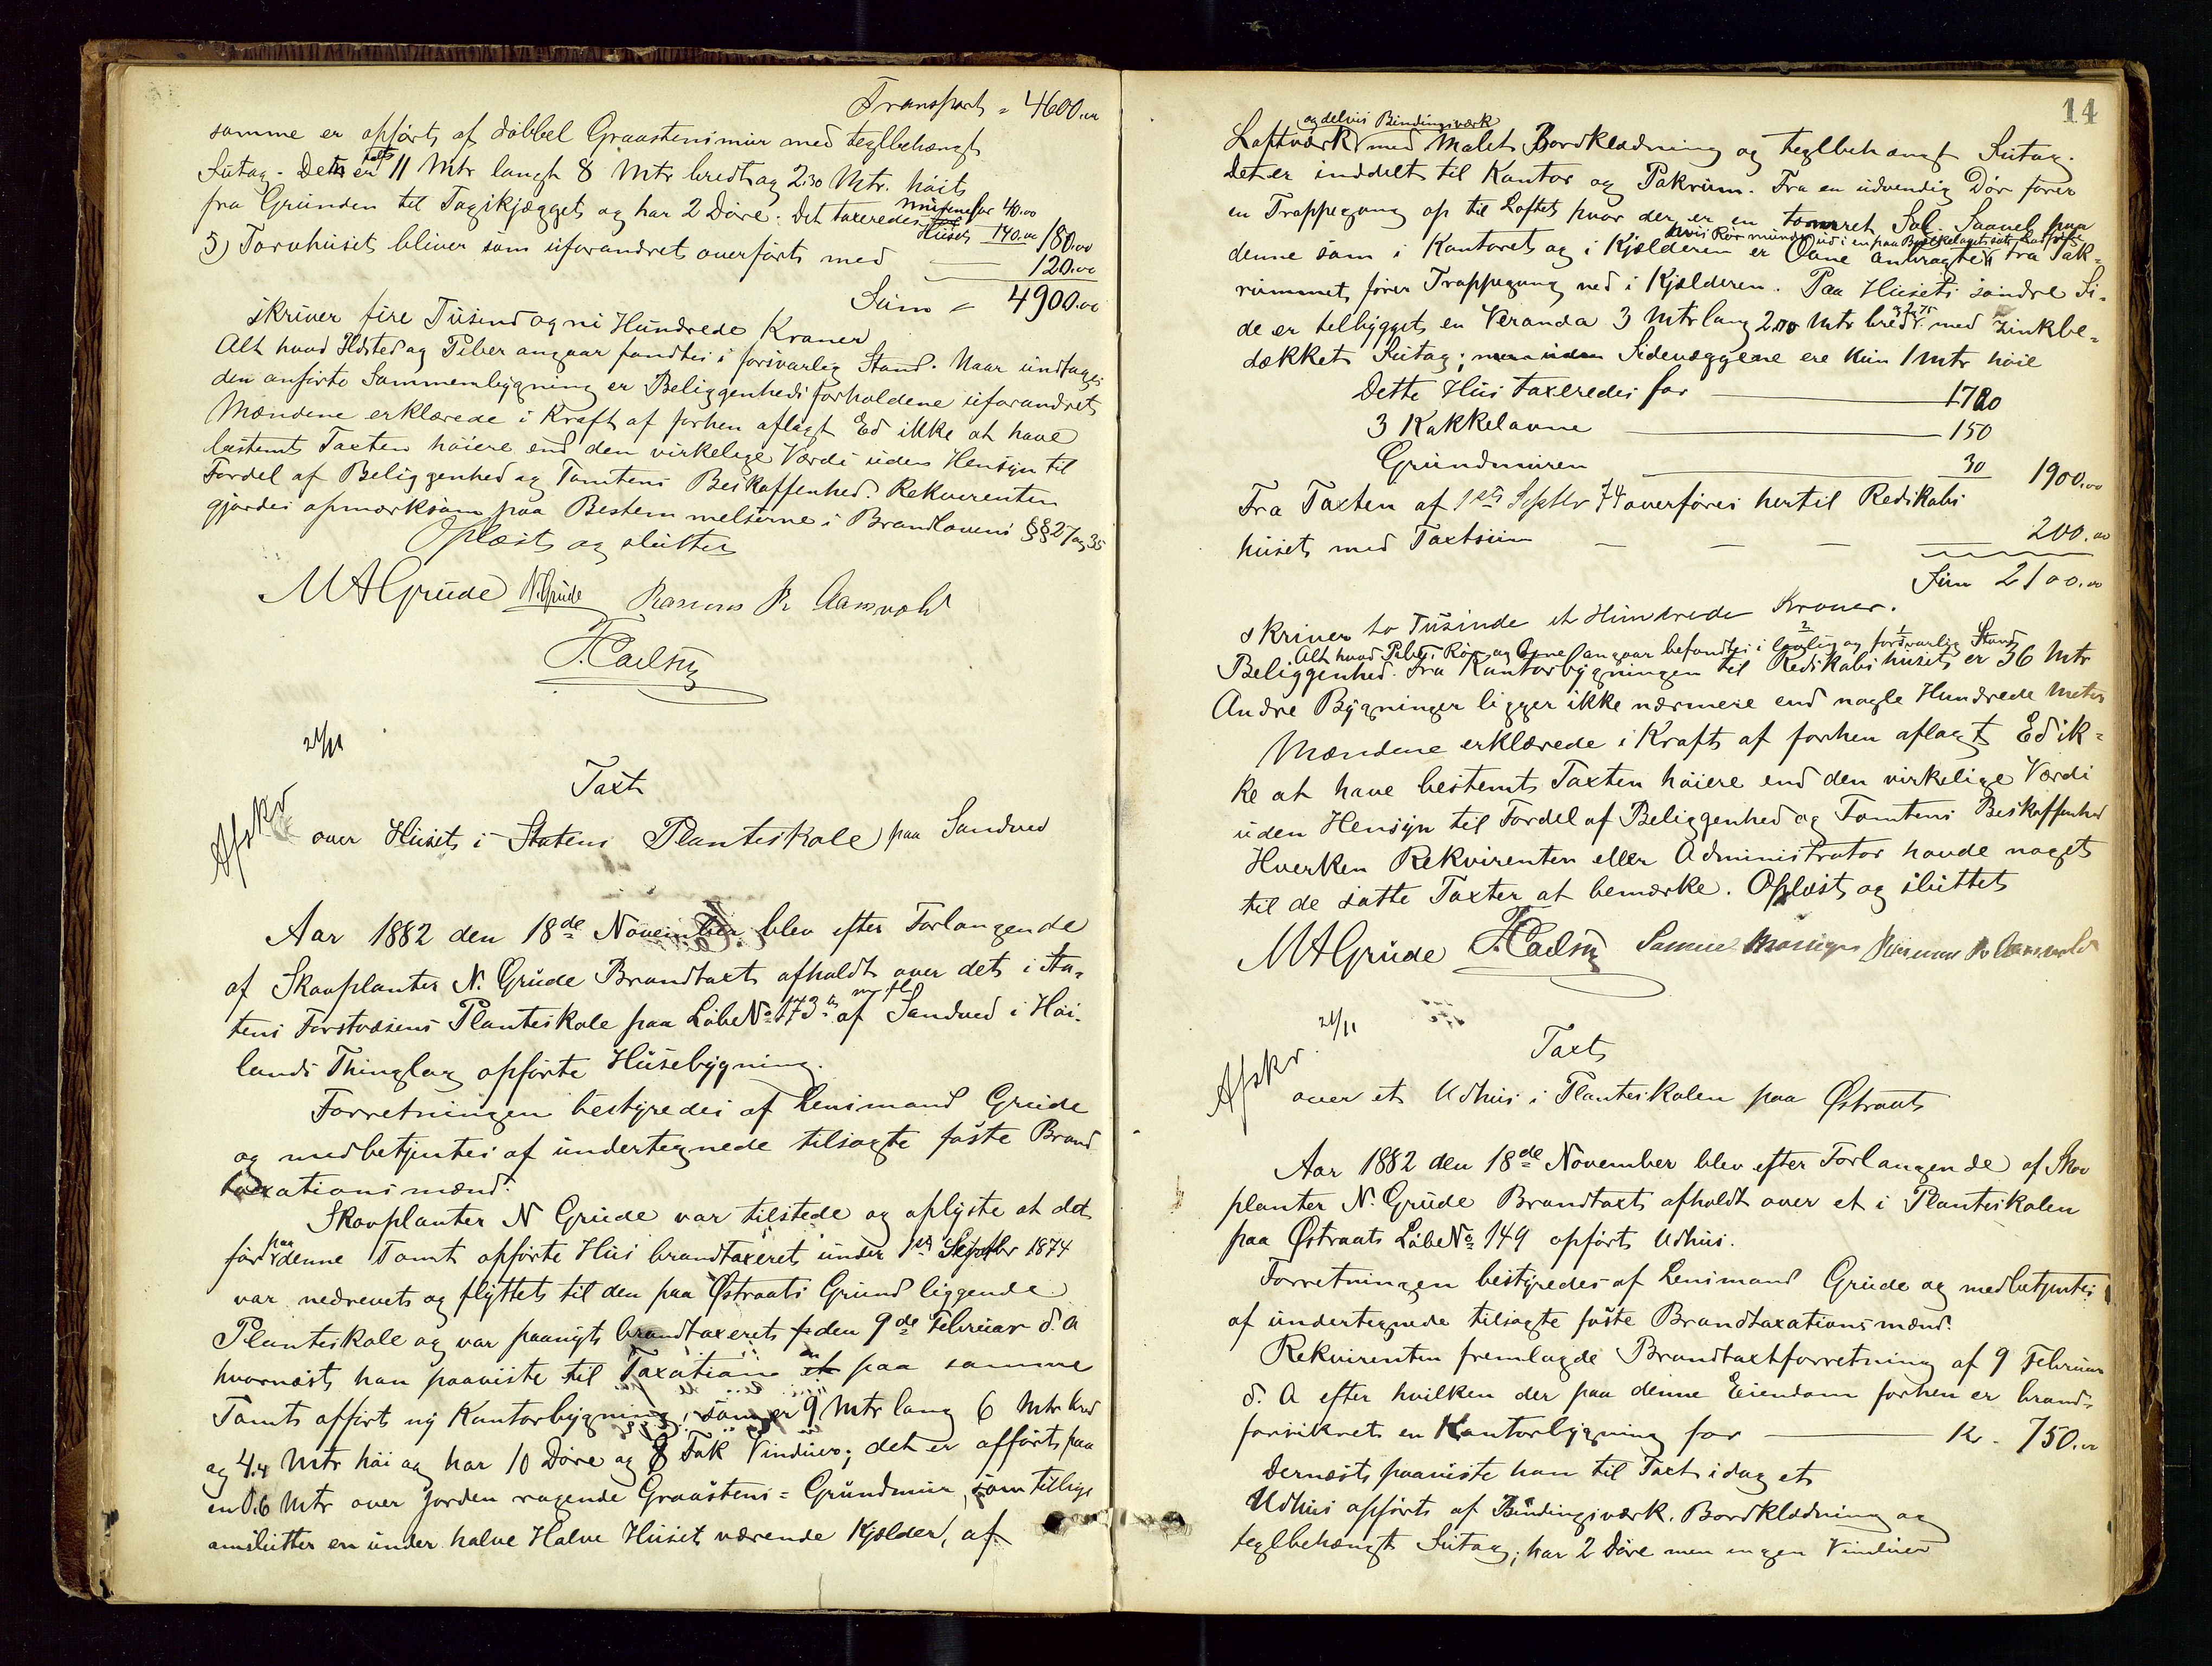 Transport = 4600.00
samme er opført af dobbel Graastensmur med teglbehængt
Sutag. Det er 11 Mtr langt 8 Mtr bredt og 2.30 Mtr. høit
fra Grunden til Tagskjægget og har 2 Døre. Det taxeredes
Muren for 40.00
Huset 140.00 180.00
5) Torvhuset bliver som uforandret overført med 120.00
Sum = 4900.00
skriver fire Tusind og ni Hundrede Kroner
Alt hvad Ildsted og Piber angaar fandtes i forsvarlig Stand. Naar undtages
den anførte Sammenbygning er Beliggenhedsforholdene uforandret
Mændene erklærede i Kraft af forhen aflagt Ed ikke at have
bestemt Taxten høiere end den virkelige Værdi uden Hensyn til
Fordel af Beliggenhed og Tomtens Beskaffenhed. Rekvirenten
gjordes opmærksom paa Bestemmelserne i Brandlovens §§27 og 35
Oplæst og sluttet
MAGrude N.Grude Rasmus R Aarsvold
T.Carlsen
21/11
Afskr
Taxt
over Huset i Statens Planteskole paa Sandved
Aar 1882 den 18de November blev efter Forlangende
af Skovplanter N. Grude Brandtaxt afholdt over det i Sta-
tens Forstvæsens Planteskole paa LøbeNo 173 af Sandved i Høi-
lands Thinglag opførte Husebygning.
Forretningen bestyredes af Lensmand Grude
og medbetjentes af undertegnede tilsagte faste Brand
taxationsmænd.
Skovplanter N Grude var tilstede og oplyste at det
før paa denne Tomt opførte Hus brandtaxeret under 1ste Septbr 1874
var nedrevet og flyttet til den paa Østraats Grund liggende
Planteskole og var paanyt brandtaxeret den 9de Februar d. A
hvornæst han paaviste til Taxation en paa samme
Tomt opført ny Kontorbygning, som er 9 Mtr lang 6 Mtr bred
og 4.4 Mtr høi og har 10 Døre og 8 Fak Vinduer; det er opført paa
en 0.6 Mtr over Jorden ragende Graastens-Grundmur, som tillige
omslutter en under halve Halve Huset værende Kjelder, af
14
og delvis Bindingsværk
Laftværk med malet Bordklædning og teglbehængt Sutag.
Det er inddelt til Kontor og Pakrum. Fra en udvendig Dør fører
en Trappegang op til Loftet hvor der er en tømret Sal. Saavel paa
hvis Rør munder ud i en paa
denne som i Kontoret og i Kjelderen er Ovne anbragte. Fra Pak-
rummet fører Trappegang ned i Kjelderen. Paa Husets søndre Si-
de er tilbygget en Veranda 3 Mtr lang 2.00 Mtr bred med Zinkbe-
dækket Sutag; Sidevæggene ere kun 1 Mtr høie
Dette Hus taxeredes for 1720
3 Kakkelovne 150
Grundmuren 30 1900.00
Fra Taxten af 1ste Septbr 74 overføres hertil Redskabs
huset med Taxtsum 200.00
Sum 2100.00
skriver to Tusinde et Hundrede Kroner.
Alt hvad Piber, Rør og Ovne angaar befandtes i lovlig og forsvarlig Stand
Beliggenhed. Fra Kontorbygningen til Redskabshuset er 36 Mtr
Andre Bygninger ligger ikke nærmere end nogle Hundrede Meter
Mændene erklærede i Kraft af forhen aflagt Ed ik-
ke at have bestemt Taxten høiere end den virkelige Værdi
uden Hensyn til Fordel af Beliggenhed og Tomtens Beskaffenhed
Hverken Rekvirenten eller Administrator havde noget
til de satte Taxter at bemærke. Oplæst og sluttet
MAGrude T.Carlsen Samuel Rasmus R Aarsvold
21/11
Afskr.
Taxt
over et Udhus i Planteskolen paa Østraat
Aar 1882 den 18de November blev efter Forlangende af Skov
planter N. Grude Brandtaxt afholdt over et i Planteskolen
paa Østraat LøbeNo 149 opført Udhus.
Forretningen bestyredes af Lensmand Grude og medbetjentes
af undertegnede tilsagte faste Brandtaxationsmænd.
Rekvirenten fremlagde Brandtaxtforretning af 9 Februar
d. A efter hvilken der paa denne Eiendom forhen er brand-
forsikret en Kontorbygning for Kr. 750.00
Dernæst paaviste han til Taxt idag et
Udhus opført af Bindingsværk, Bordklædning og
teglbehængt Sutag; har 2 Døre men ingen Vinduer